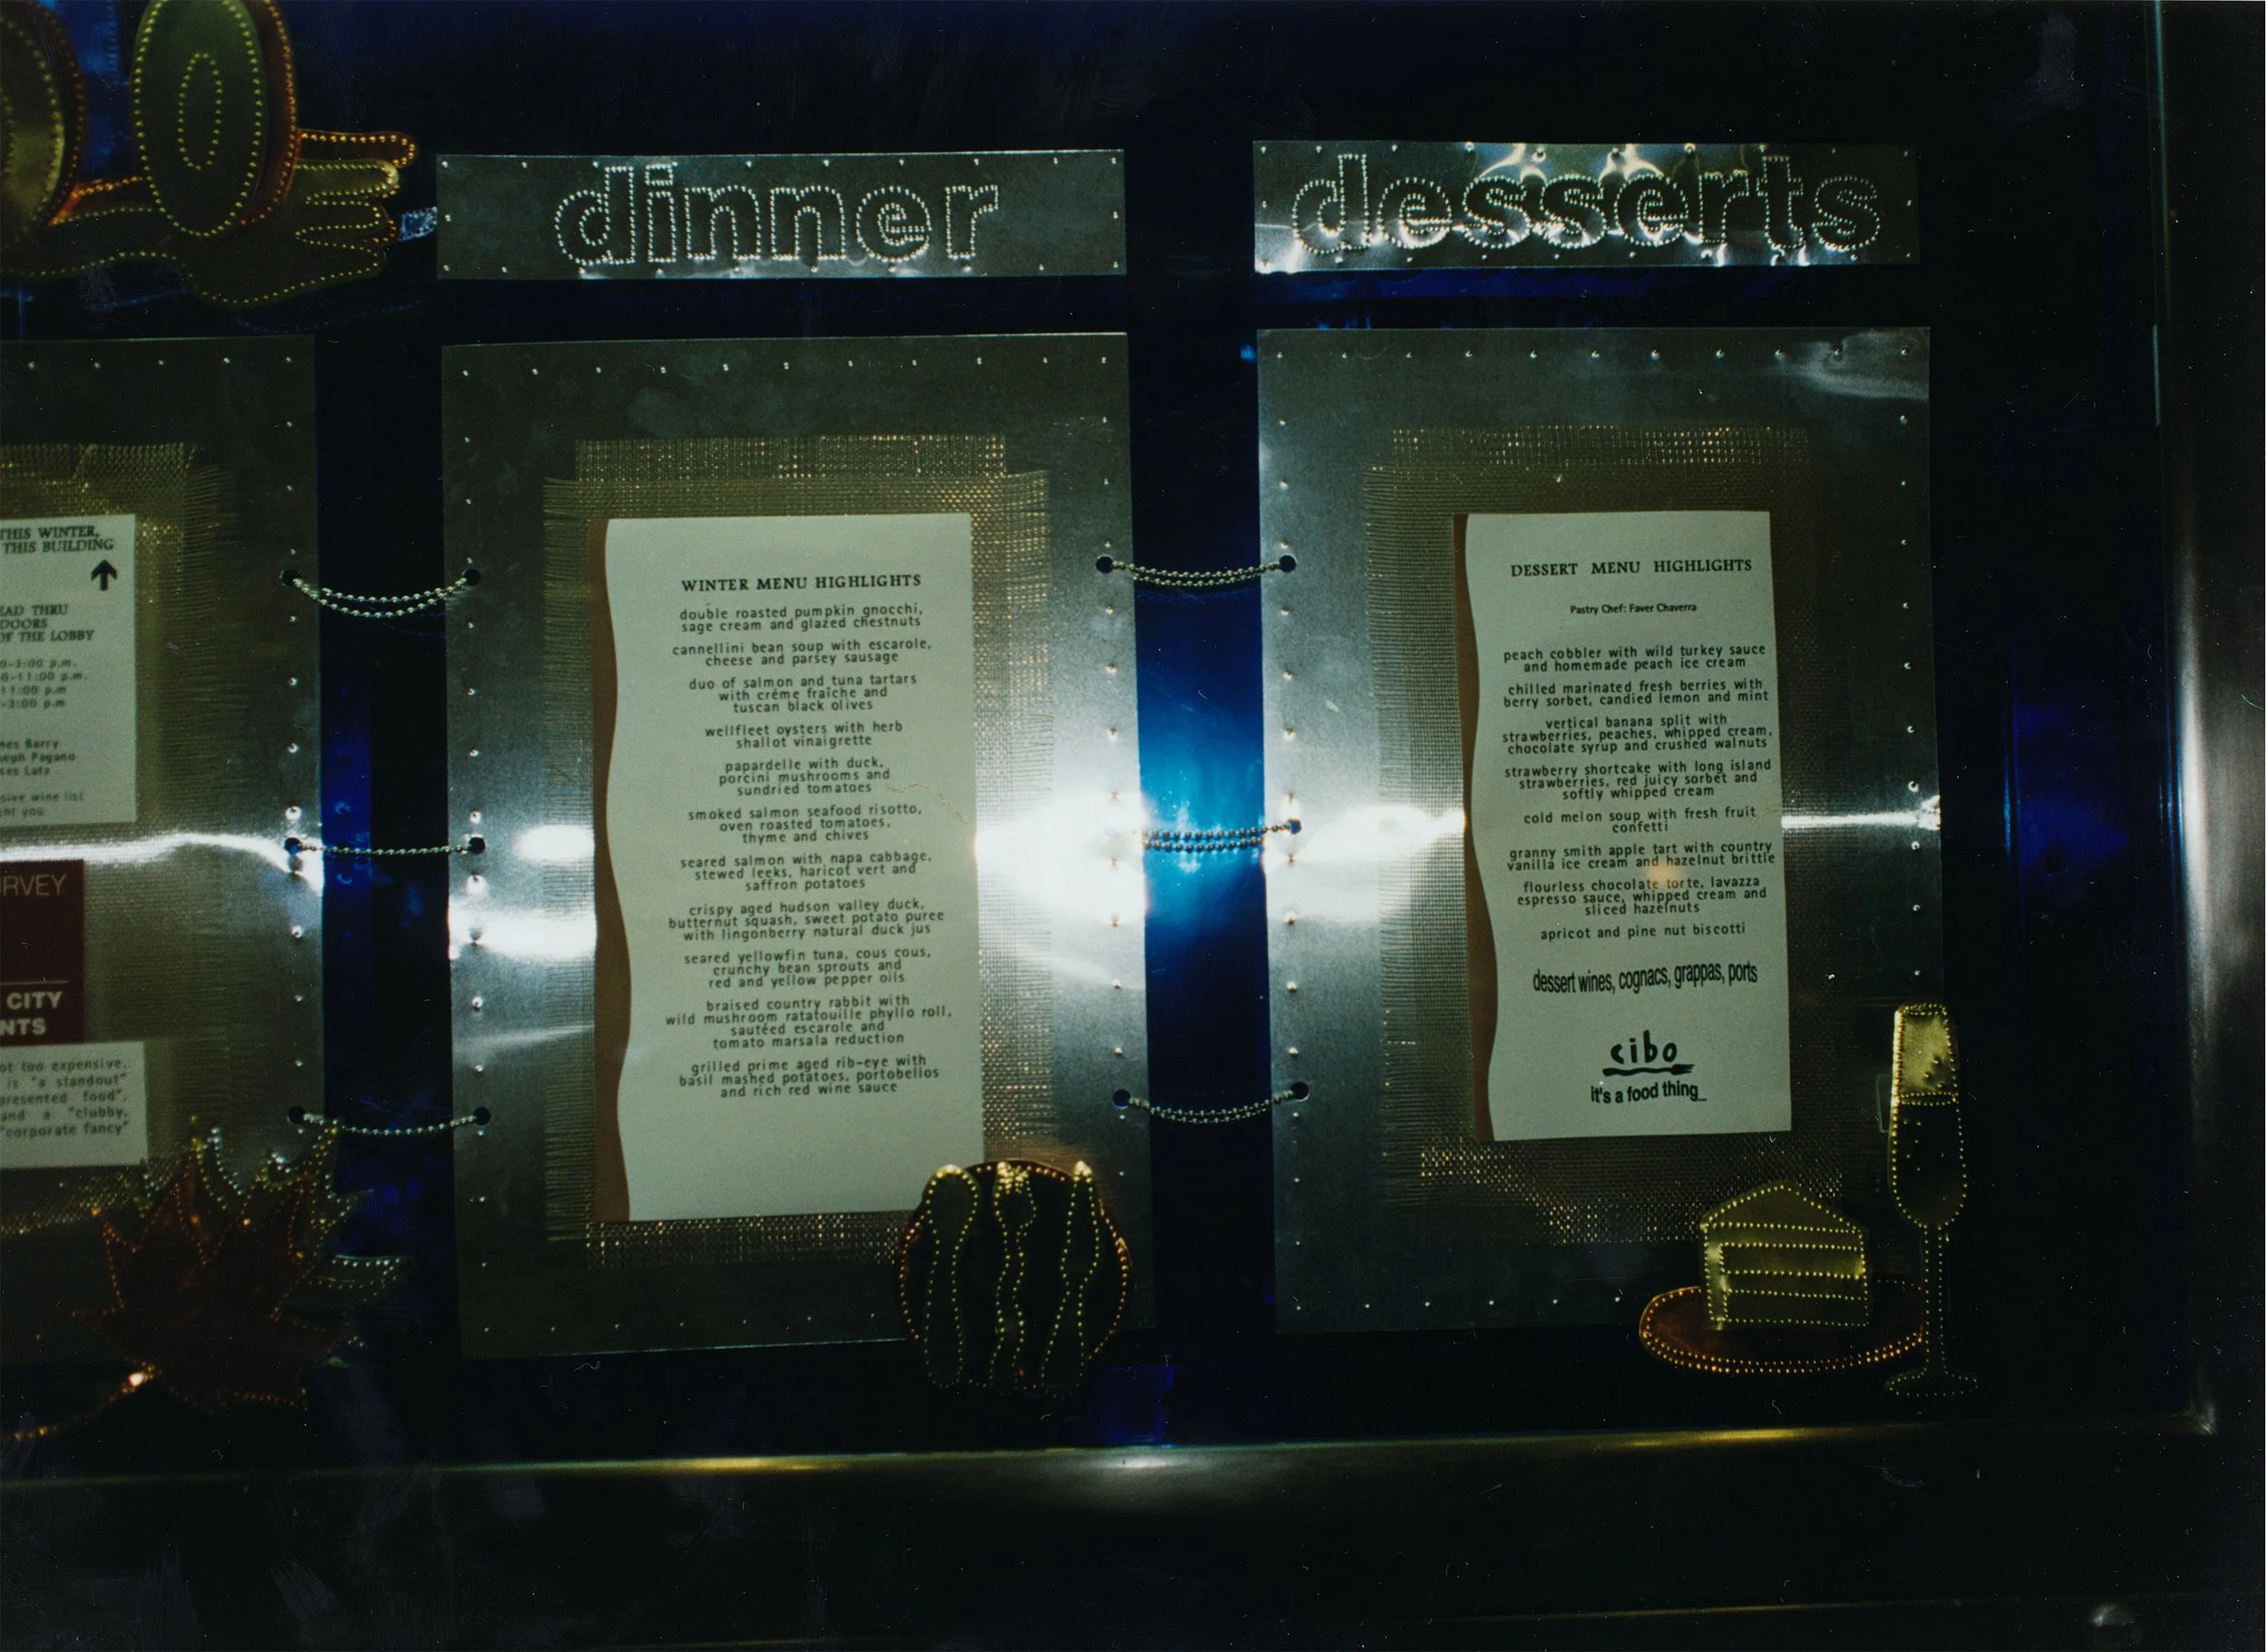 THIS WINTER,
THIS BUILDING
THRU
DOORS
OF THE LOBBY
-3:00 p.m.
-11:00 p.m.
11:00 p.m
-3:00 p.m
Barry
Pagano
Latz
wine list
you
CITY
too expensive.
is "a standout"
food",
and a "clubby.
"corporate fancy"
dinner
WINTER MENU HIGHLIGHTS
double roasted pumpkin gnocchi,
sage cream and glazed chestnuts
cannellini bean soup with escarole,
cheese and parsey sausage
duo of salmon and tuna tartars
with créme fraîche and
tuscan black olives
wellfleet oysters with herb
shallot vinaigrette
papardelle with duck,
porcini mushrooms and
sundried tomatoes
smoked salmon seafood risotto,
oven roasted tomatoes,
thyme and chives
seared salmon with napa cabbage,
stewed leeks, haricot vert and
saffron potatoes
crispy aged hudson valley duck,
butternut squash, sweet potato puree
with lingonberry natural duck jus
seared yellowfin tuna, cous cous,
crunchy bean sprouts and
red and yellow pepper oils
braised country rabbit with
wild mushroom ratatouille phyllo roll,
sautéed escarole and
tomato marsala reduction
grilled prime aged rib-eye with
basil mashed potatoes, portobellos
and rich red wine sauce
desserts
DESSERT MENU HIGHLIGHTS
Pastry Chef: Faver Chaverra
peach cobbler with wild turkey sauce
and homemade peach ice cream
chilled marinated fresh berries with
berry sorbet, candied lemon and mint
vertical banana split with
strawberries, peaches, whipped cream,
chocolate syrup and crushed walnuts
strawberry shortcake with long island
strawberries, red juicy sorbet and
softly whipped cream
cold melon soup with fresh fruit
confetti
granny smith apple tart with country
vanilla ice cream and hazelnut brittle
flourless chocolate torte, lavazza
espresso sauce, whipped cream and
sliced hazelnuts
apricot and pine nut biscotti
dessert wines, cognacs, grappas, ports
cibo
it's a food thing...